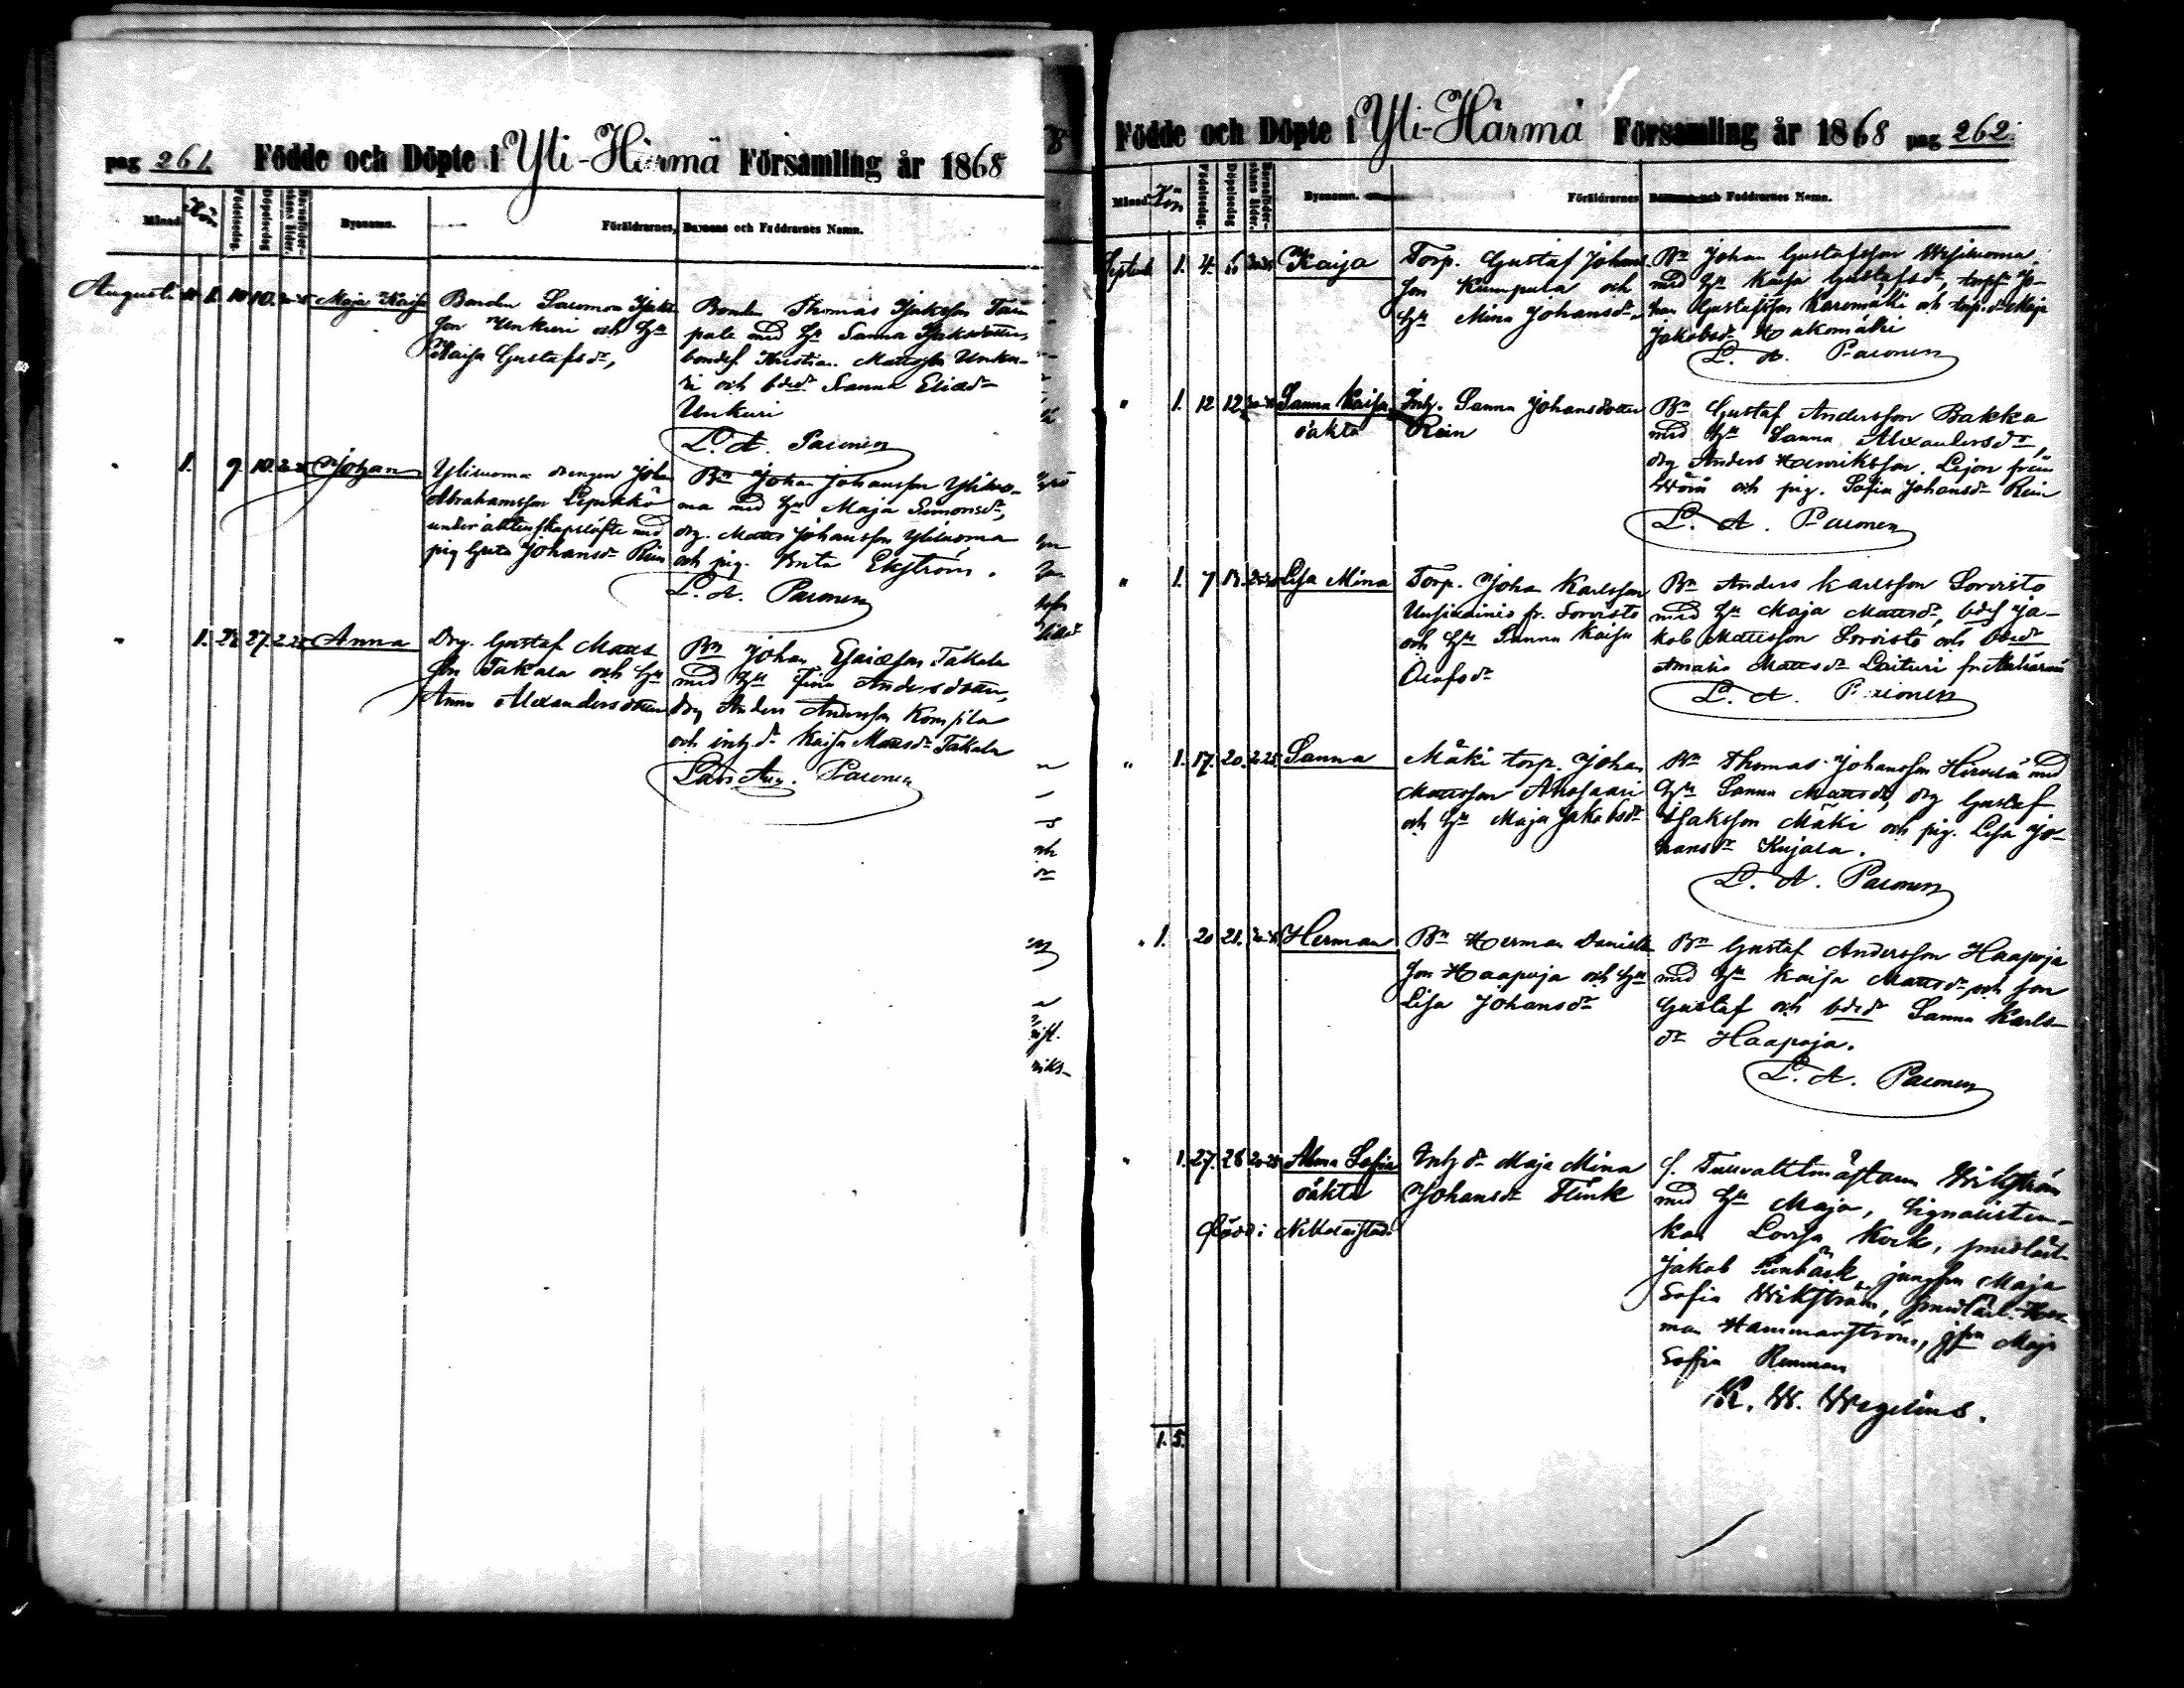 pag 261. Födde och Döpte i Yli-Härmä Församling år 1868
Månad. Kön Födelsedag. Döpelsedag Barnaföderskans ålder. Bysnamn. Föräldrarnes, Barnens och Faddrarnes Namn.
Augusti 1. 10. 10. Maja Kaisa
Bonden Salomon Isaks
son Unkuri och Hu
Kaisa Gustafsdr,
Bonden Thomas Isaksson
pala med Hu Sanna Isaksdotter,
bondes. Kristian Mattsson Unku-
ri och bdedr Sanna Eliædr
Unkuri
L. A. Paconen
" 1. 9. 10. Johan
Yliluoma drengen Johan
Abrahamsson Lepukkö
under äktenskapslöfte med
pig Greta Johansdr Rein
Bn Johan Johansson Yliluo-
ma med Hu Maja Simonsdr,
drg. Matts Johansson Yliluoma
och pig. Brita Ekström.
L. A. Paconen
" 1. 27. Anna
Drg. Gustaf Matts
son Takala och Hu
Anna Alexandersdotter
Bn Johan Esaiæson Takala
med Hu Fina Andersdotter,
drg Anders Andersson Kompila
och inh. dr Kaisa Mattsdr Takala
Lars Aug. Paconen
Födde och Döpte i Yli-Härmä Församling år 1868 pag 262.
Månad. Kön Födelsedag. Döpelsedag Barnaföderskans ålder. Bysnamn. Föräldrarnes Barnens och Faddrarnes Namn.
Septemb 1. 4. 6 Kaisa
Torp. Gustaf Johans
son Kumpula och
Hu Mina Johansdr
Bn Johan Gustafsson Wesiluoma
med Hu Kaisa Gustafsdr, torps Jo-
han Gustafsson Karomäki och torp. dr Maja
Jakobsdr Hakomäki
L. A. Paconen
" 1. 12 12 Sanna Kaisa
oäkta
Inh. Sanna Johansdotter
Rein
Bn Gustaf Andersson Bakka
med Hu Sanna Alexandersdr,
drg Anders Henriksson Lejon från
Wörå och pig. Sofia Johansdr Rein
L. A. Paconen
" 1. 7 13. Lisa Mina
Torp. Johan Karlsson
Uusikainio fr. Sorvisto
och Hu Sanna Kaisa
Olofsdr
Bn Anders Karlsson Sorvisto
med Hu Maja Mattsdr, bdes Ja-
kob Mattsson Sorvisto och bdedr
Amalia Mattsdr Laituri fr
L. A. Paconen
" 1. 17. 20. Sanna
Mäki torp. Johan
Mattsson Ahosaari
och Hu Maja Jakobsdr
Bn Thomas Johansson Hirvelä med
Hu Sanna Mattsdr, drg Gustaf
Isaksson Mäki och pig. Lisa Jo-
hansdr Kujala.
L. A. Paconen
" 1. 20 21. Herman
Bn Herman Daniels
son Haapoja och Hu
Lisa Johansdr
Bn Gustaf Andersson Haapoja
med Hu Kaisa Mattsdr och son
Gustaf och bdedr Sanna Karls-
dr Haapoja.
L. A. Paconen
" 1. 27. 28 Alma Sofia
oäkta
född i Nikolaistad
Inh dr Maja Mina
Johansdr Flink
f. Tullvaktmästaren Wikström
med Hu Maja,
kan Lovisa Kock, smedlärl.
Jakob jungfru Maja
Sofia Wikström, smedlärl. Her-
man Hammarström, jfru Maja
Sofia Renman
K. W. Wegelius.
1. 5.